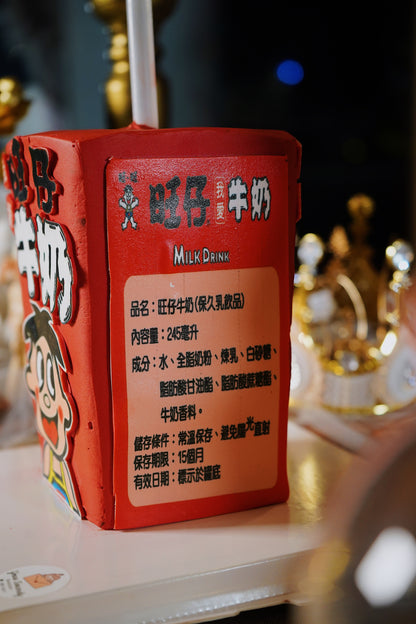 旺仔
牛奶
旺仔牛奶
MILK DRINK
品名：旺仔牛奶(保久乳飲品)
內容量：245毫升
成分：水、全脂奶粉、煉乳、白砂糖、
脂肪酸甘油酯、脂肪酸蔗糖酯、
牛奶香料。
儲存條件：常溫保存、避免陽光直射
保存期限：15個月
有效日期：標示於罐底